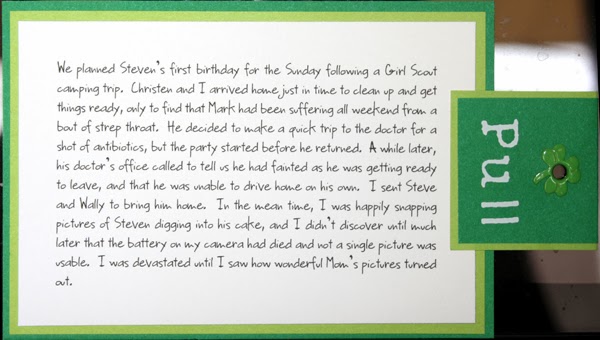 We planned Steven's first birthday for the Sunday following a Girl Scout
camping trip. Christen and I arrived home just in time to clean up and get
things ready, only to find that Mark had been suffering all weekend from a
bout of strep throat. He decided to make a quick trip to the doctor for a
shot of antibiotics, but the party started before he returned. A while later,
his doctor's office called to tell us he had fainted as he was getting ready
to leave, and that he was unable to drive home on his own. I sent Steve
and Wally to bring him home. In the mean time, I was happily snapping
pictures of Steven digging into his cake, and I didn't discover until much
later that the battery on my camera had died and not a single picture was
usable. I was devastated until I saw how wonderful Mom's pictures turned
out.
Pull